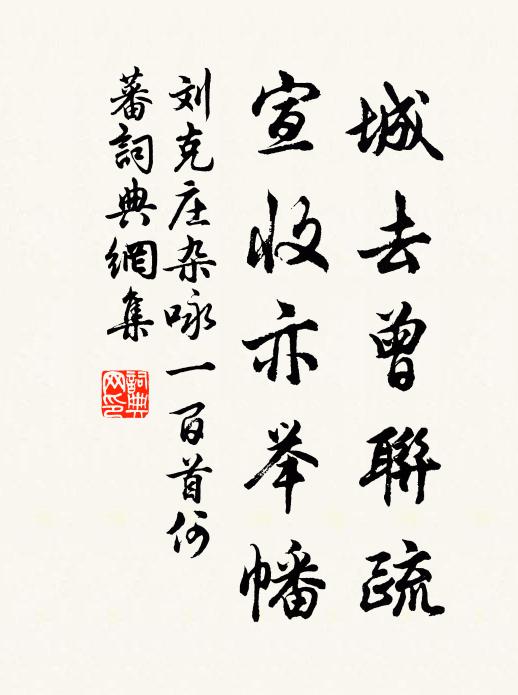 城去曾聯疏
宣收亦举幡
刘克庄杂咏一百首何
蕃詞典網集
詞典
网印